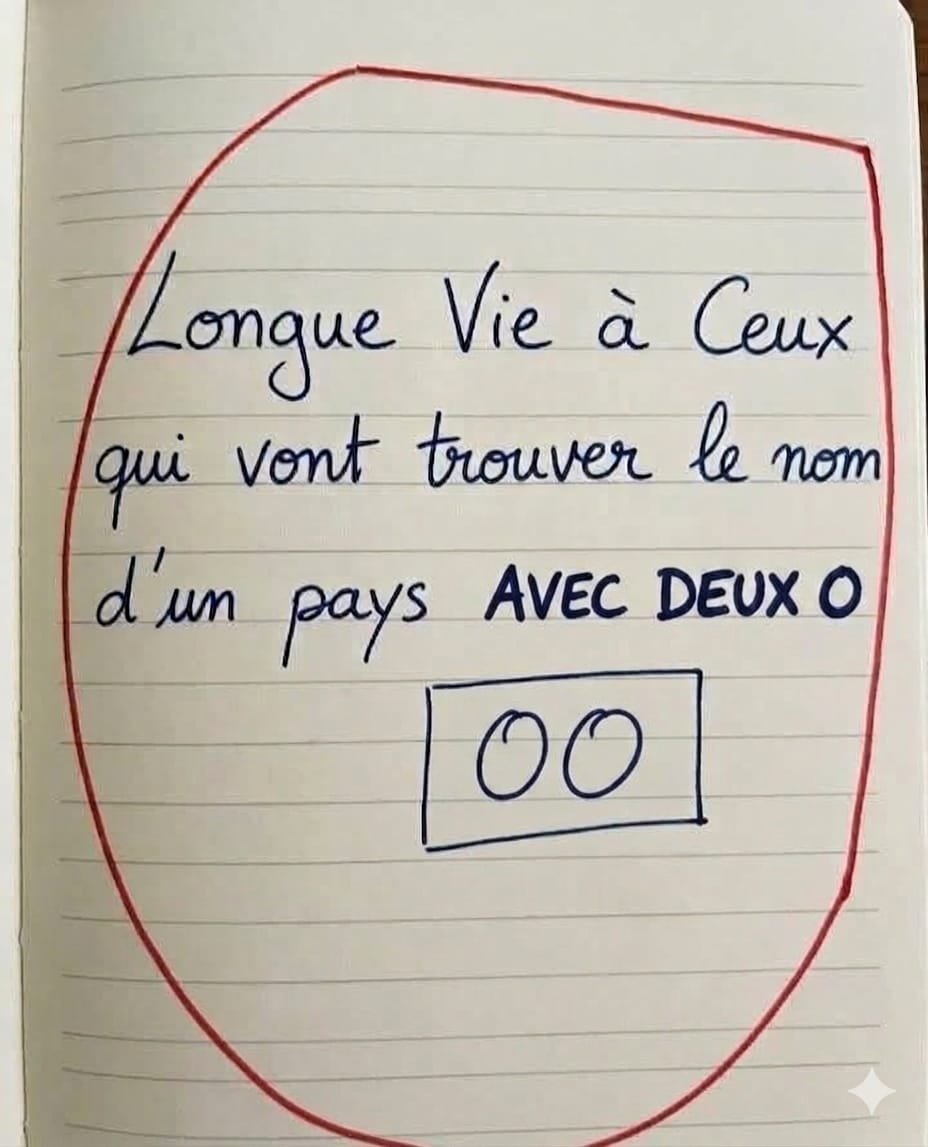 Longue Vie à Ceux
qui vont trouver le nom
d'un pays AVEC DEUX O
OO